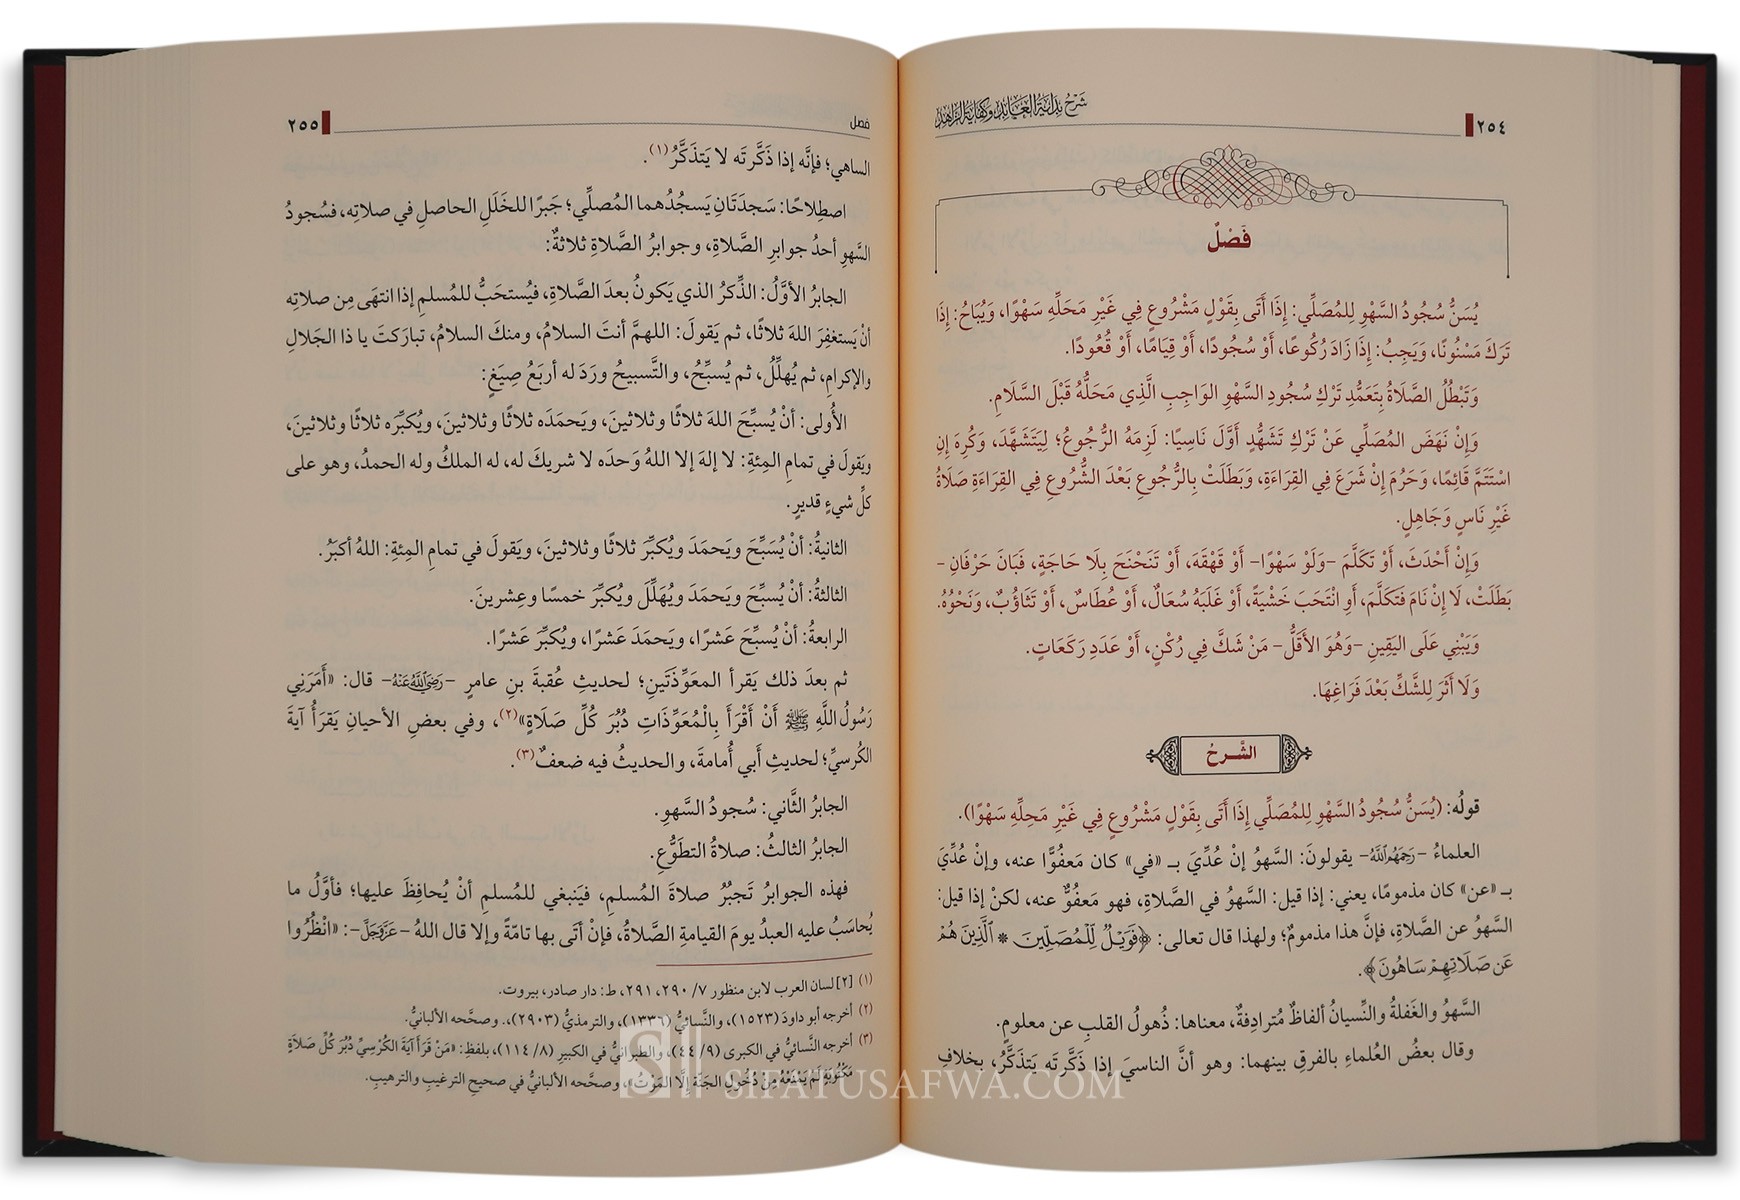 ٢٥٤
شرح بداية العابد وكفاية الزاهد
فَصْلٌ
يُسَنُّ سُجُودُ السَّهْوِ لِلمُصَلِّي: إِذَا أَتَى بِقَوْلٍ مَشْرُوعٍ فِي غَيْرِ مَحَلِّهِ سَهْوًا، وَيُبَاحُ: إِذَا
تَرَكَ مَسْنُونًا، وَيَجِبُ: إِذَا زَادَ رُكُوعًا، أَوْ سُجُودًا، أَوْ قِيَامًا، أَوْ قُعُودًا.
وَتَبْطُلُ الصَّلَاةُ بِتَعَمُّدِ تَرْكِ سُجُودِ السَّهْوِ الوَاجِبِ الَّذِي مَحَلُّهُ قَبْلَ السَّلَامِ.
وَإِنْ نَهَضَ المُصَلِّي عَنْ تَرْكِ تَشَهُّدٍ أَوَّلَ نَاسِيًا: لَزِمَهُ الرُّجُوعُ؛ لِيَتَشَهَّدَ، وَكُرِهَ إِنِ
اسْتَتَمَّ قَائِمًا، وَحَرُمَ إِنْ شَرَعَ فِي القِرَاءَةِ، وَبَطَلَتْ بِالرُّجُوعِ بَعْدَ الشُّرُوعِ فِي القِرَاءَةِ صَلَاةُ
غَيْرِ نَاسٍ وَجَاهِلٍ.
وَإِنْ أَحْدَثَ، أَوْ تَكَلَّمَ -وَلَوْ سَهْوًا- أَوْ قَهْقَهَ، أَوْ تَنَحْنَحَ بِلَا حَاجَةٍ، فَبَانَ حَرْفَانِ -
بَطَلَتْ، لَا إِنْ نَامَ فَتَكَلَّمَ، أَوِ انْتَحَبَ خَشْيَةً، أَوْ غَلَبَهُ سُعَالٌ، أَوْ عُطَاسٌ، أَوْ تَثَاؤُبٌ، وَنَحْوُهُ.
وَيَبْنِي عَلَى اليَقِينِ -وَهُوَ الأَقَلُّ- مَنْ شَكَّ فِي رُكْنٍ، أَوْ عَدَدِ رَكَعَاتٍ.
وَلَا أَثَرَ لِلشَّكِّ بَعْدَ فَرَاغِهَا.
الشَّرحُ
قولُه: (يُسَنُّ سُجُودُ السَّهْوِ لِلمُصَلِّي إِذَا أَتَى بِقَوْلٍ مَشْرُوعٍ فِي غَيْرِ مَحِلِّهِ سَهْوًا).
العلماءُ -رَحِمَهُمُ اللَّهُ- يقولونَ: السَّهوُ إنْ عُدِّيَ بـ «في» كان مَعفُوًّا عنه، وإنْ عُدِّيَ
بـ «عن» كان مذمومًا، يعني: إذا قيل: السَّهوُ في الصَّلاةِ، فهو مَعفُوٌّ عنه، لكنْ إذا قيل:
السَّهوُ عن الصَّلاةِ، فإنَّ هذا مذمومٌ؛ ولهذا قال تعالى: ﴿فَوَيْلٌ لِّلْمُصَلِّينَ * ٱلَّذِينَ هُمْ
عَن صَلَاتِهِمْ سَاهُونَ﴾.
السَّهوُ والغَفلةُ والنِّسيانُ ألفاظٌ مُترادِفةٌ، معناها: ذُهولُ القلبِ عن معلومٍ.
وقال بعضُ العُلماءِ بالفرقِ بينهما: وهو أنَّ الناسيَ إذا ذَكَّرتَه يَتذَكَّرُ، بخلافِ
فصل
٢٥٥
الساهي؛ فإنَّه إذا ذَكَّرتَه لا يَتذَكَّرُ(١).
اصطِلاحًا: سَجدَتَانِ يَسجُدُهما المُصلِّي؛ جَبرًا للخَلَلِ الحاصلِ في صلاتِه، فسُجودُ
السَّهوِ أحدُ جوابرِ الصَّلاةِ، وجوابرُ الصَّلاةِ ثلاثةٌ:
الجابرُ الأوَّلُ: الذِّكرُ الذي يَكونُ بعدَ الصَّلاةِ، فيُستحَبُّ للمُسلمِ إذا انتهَى مِن صلاتِه
أنْ يَستغفِرَ اللهَ ثلاثًا، ثم يَقولَ: اللهمَّ أنتَ السلامُ، ومنكَ السلامُ، تبارَكتَ يا ذا الجَلالِ
والإكرامِ، ثم يُهلِّلُ، ثم يُسبِّحُ، والتَّسبيحُ ورَدَ له أربَعُ صِيَغٍ:
الأُولى: أنْ يُسبِّحَ اللهَ ثلاثًا وثلاثينَ، ويَحمَدَه ثلاثًا وثلاثينَ، ويُكبِّرَه ثلاثًا وثلاثينَ،
ويَقولَ في تمامِ المِئةِ: لا إلهَ إلا اللهُ وَحدَه لا شريكَ له، له الملكُ وله الحمدُ، وهو على
كلِّ شيءٍ قديرٍ.
الثانيةُ: أنْ يُسَبِّحَ ويَحمَدَ ويُكبِّرَ ثلاثًا وثلاثينَ، ويَقولَ في تمامِ المِئةِ: اللهُ أكبَرُ.
الثالثةُ: أنْ يُسبِّحَ ويَحمَدَ ويُهَلِّلَ ويُكبِّرَ خمسًا وعِشرينَ.
الرابعةُ: أنْ يُسبِّحَ عَشرًا، ويَحمَدَ عَشرًا، ويُكبِّرَ عَشرًا.
ثم بعدَ ذلك يَقرأ المعَوِّذَتَينِ؛ لحديثِ عُقبةَ بنِ عامرٍ -رَضِيَ اللَّهُ عَنْهُ- قال: «أَمَرَنِي
رَسُولُ اللَّهِ ﷺ أَنْ أَقْرَأَ بِالْمُعَوِّذَاتِ دُبُرَ كُلِّ صَلَاةٍ»(٢)، وفي بعضِ الأحيانِ يَقرَأُ آيةَ
الكُرسيِّ؛ لحديثِ أَبي أُمامةَ، والحديثُ فيه ضعفٌ(٣).
الجابرُ الثَّاني: سُجودُ السَّهوِ.
الجابرُ الثالثُ: صلاةُ التطَوُّعِ.
فهذه الجوابرُ تَجبُرُ صلاةَ المُسلمِ، فيَنبغي للمُسلمِ أنْ يُحافِظَ عليها؛ فأوَّلُ ما
يُحاسَبُ عليه العبدُ يومَ القيامةِ الصَّلاةُ، فإنْ أتَى بها تامّةً وإلا قال اللهُ -عَزَّوَجَلَّ-: «انْظُرُوا
(١) [٢] لسان العرب لابن منظور ٧/ ٢٩٠، ٢٩١، ط: دار صادر، بيروت.
(٢) أخرجه أبو داودَ (١٥٢٣)، والنَّسائيُّ (١٣٣٦)، والترمذيُّ (٢٩٠٣)،. وصحَّحه الألبانيُّ.
(٣) أخرجه النَّسائيُّ في الكبرى (٩/ ٤٤)، والطبرانيُّ في الكبيرِ (٨/ ١١٤)، بلفظِ: «مَنْ قَرَأَ آيَةَ الكُرْسِيِّ دُبُرَ كُلِّ صَلَاةٍ
مَكْتُوبَةٍ لَمْ يَمْنَعْهُ مِنْ دُخُولِ الجَنَّةِ إِلَّا المَوْتُ»، وصحَّحه الألبانيُّ في صحيحِ الترغيبِ والترهيبِ.
SIFATUSAFWA.COM